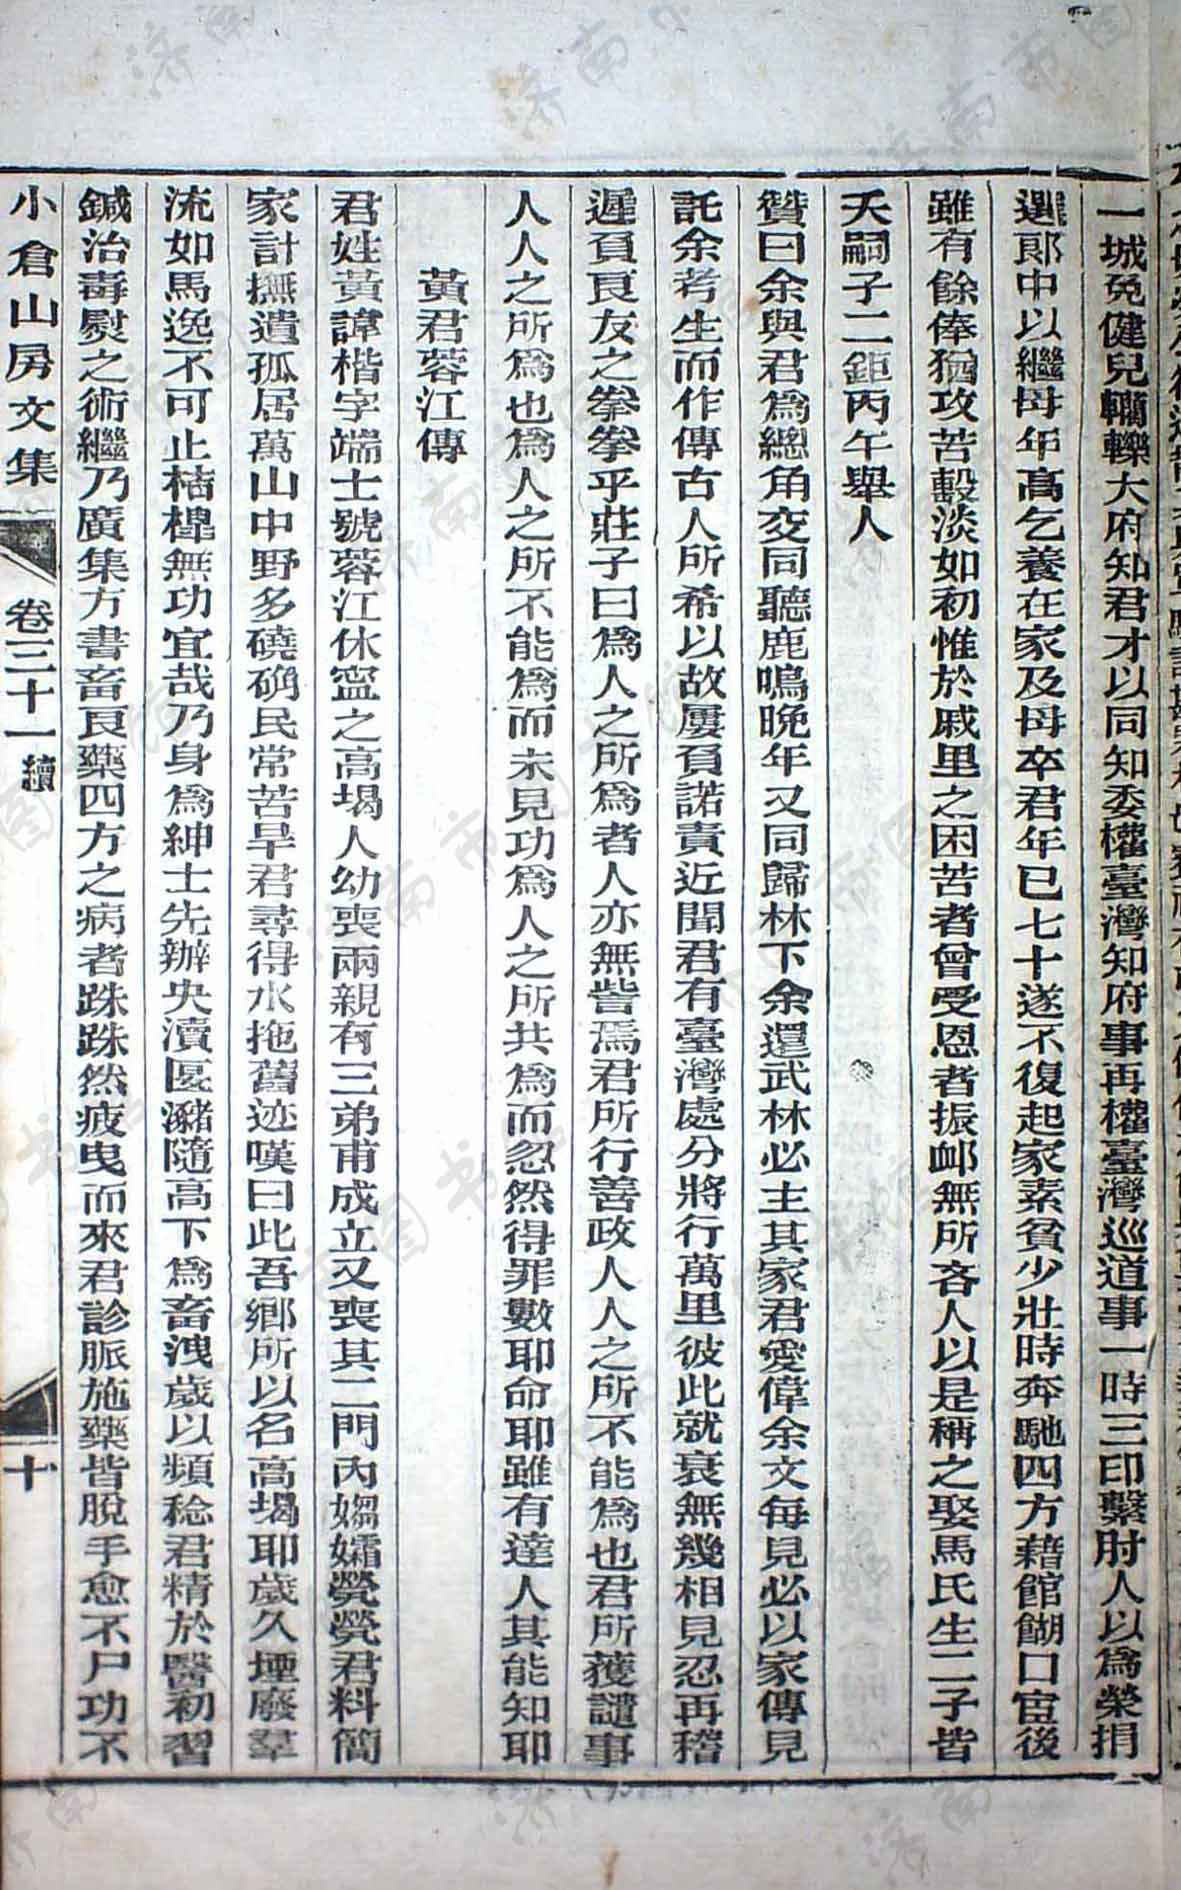 一城兗健兒轥轢大府知君才以同知委權臺灣知府事再權臺灣巡道事一時三印繫肘人以爲榮捐
選郞中以繼母年高乞養在家及母卒君年已七十遂不復起家素貧少壯時奔馳四方藉館餬口宦後
雖有餘俸猶攻苦嗀淡如初惟於戚里之困苦者曾受恩者振邺無所吝人以是稱之娶馬氏生二子皆
天嗣子二鉅丙午舉人
贊曰余與君爲總角交同聽鹿鳴晚年又同歸林下余還武林必主其家君愛偉余文每見必以家傳見
託余考生而作傳古人所希以故屢負諾責近聞君有臺灣處分將行萬里彼此就衰無幾相見忍再稽
遲負良友之拳拳乎莊子曰爲人之所爲者人亦無訾焉君所行善政人人之所不能爲也君所獲譴事
人人之所爲也爲人之所不能爲而未見功爲人之所共爲而忽然得罪數耶命耶雖有達人其能知耶
黃君蓉江傳
君姓黃諱楷字端士號蓉江休寍之高堨人幼喪兩親有三弟甫成立又喪其二門內嫋孀煢煢君料簡
家計撫遺孤居萬山中野多磽确民常苦旱君尋得水拖舊迹嘆曰此吾鄉所以名高堨耶歲久堙廢羣
流如馬逸不可止桔槹無功宜哉乃身爲紳士先辦央瀆匽瀦隨高下爲畜洩歲以頻稔君精於醫初習
鍼治毒熨之術繼乃廣集方書畜良藥四方之病者跦跦然疲曳而來君診脈施藥皆脫手愈不尸功不
小倉山房文集
卷三十一續
十